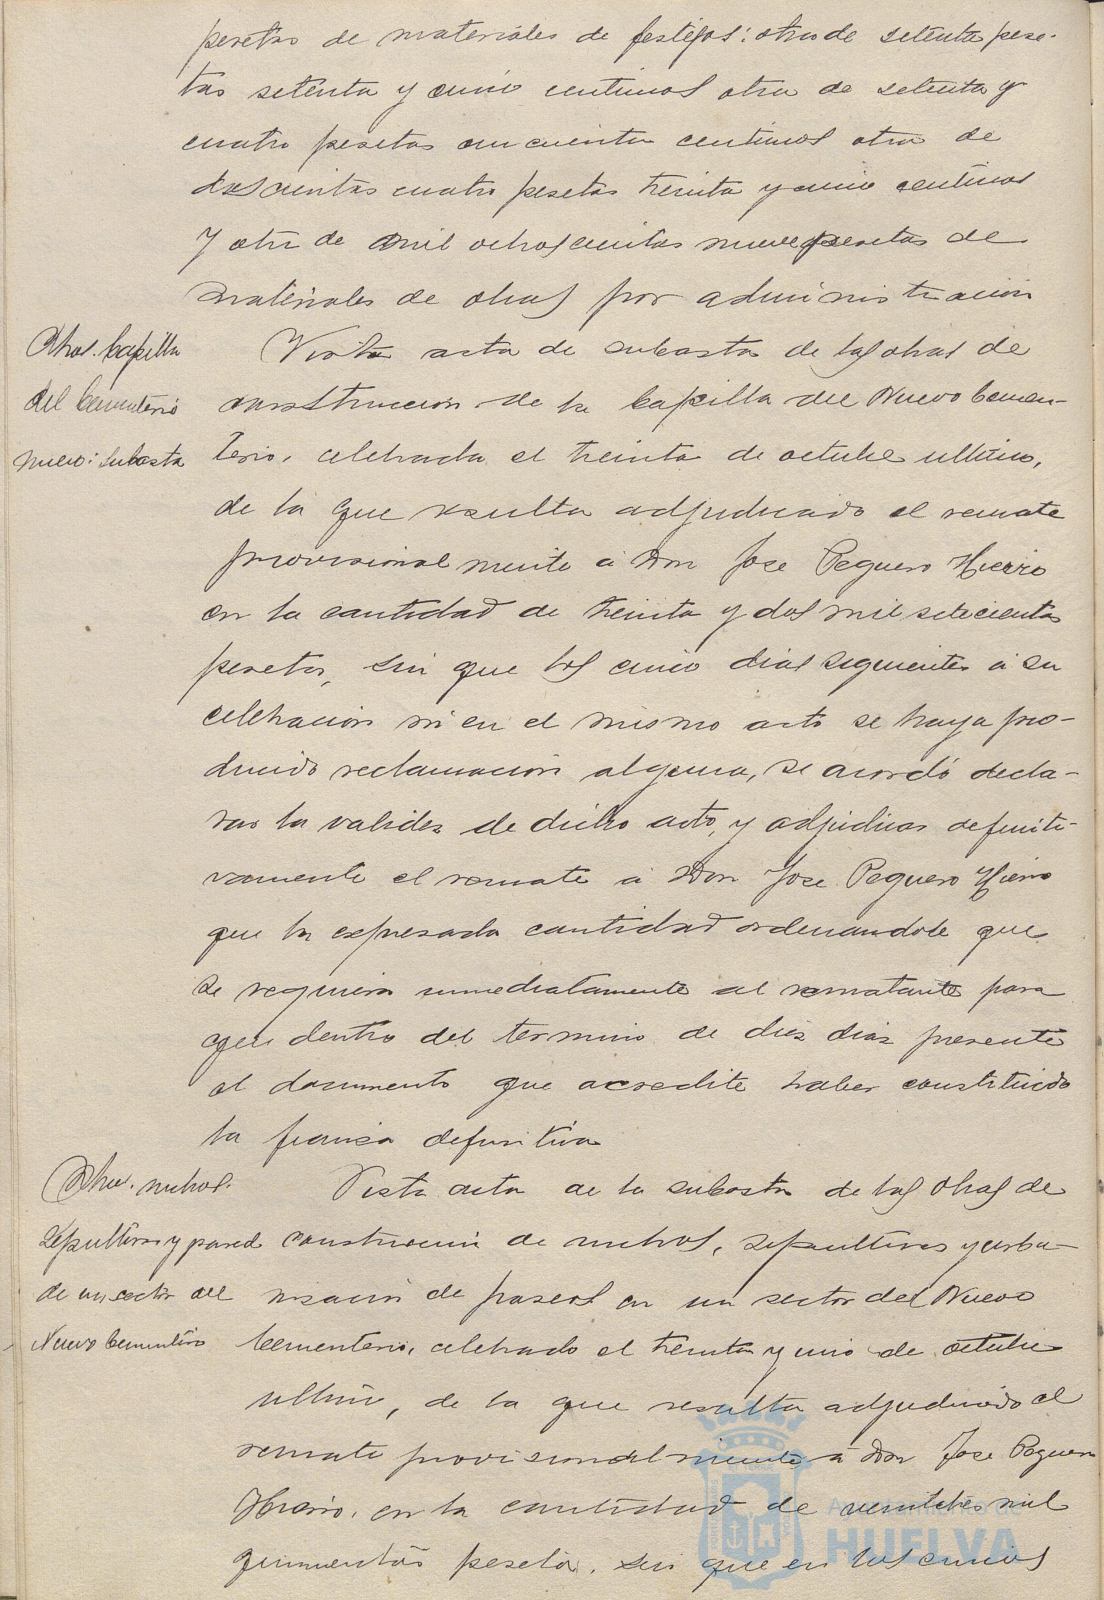 pesetas de materiales de festejos: otra de setenta pese-
tas setenta y cinco centimos otra de setenta y
cuatro pesetas cincuenta centimos otra de
doscientas cuatro pesetas treinta y cinco centimos
y otra de mil ochoscientas nueve pesetas de
materiales de obras por administracion
Obras. Capilla
del Cementerio
nuevo: subasta
Vista acta de subasta de las obras de
construccion de la Capilla del Nuevo Cemen-
terio, celebrada el treinta de octubre ultimo,
de la que resulta adjudicado el remate
provisionalmente á Don Jose Peguero Hierro
en la cantidad de treinta y dos mil setecientas
pesetas, sin que los cinco dias siguientes á su
celebracion ni en el mismo acto se haya pro-
ducido reclamacion alguna, se acordó decla-
rar la validez de dicho acto, y adjudicar definiti-
vamente el remate á Don Jose Peguero Hierro
que la expresada cantidad ordenandole que
se requiera inmediatamente al rematante para
que dentro del termino de diez dias presente
el documento que acredite haber constituido
la fianza definitiva
Obras. nichos.
sepulturas y pared
de un sector del
Nuevo Cementerio
Vista acta de la subasta de las obras de
construccion de nichos, sepulturas y urba-
nizacion de paseos en un sector del Nuevo
Cementerio, celebrado el treinta y uno de octubre
ultimo, de la que resulta adjudicado el
remate provisionalmente á Don Jose Peguero
Hierro, en la cantidad de veintitres mil
quinientas pesetas, sin que en los cinco
Ayuntamiento de
HUELVA